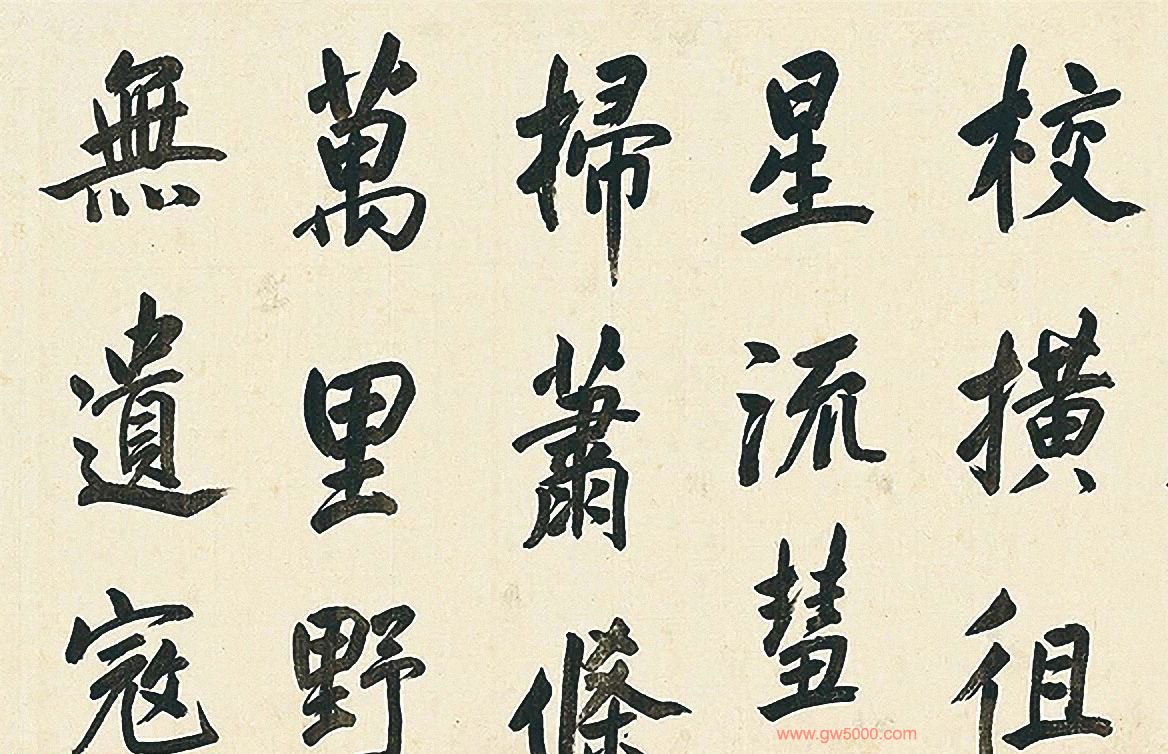 校横徂
星流彗
掃蕭條
萬里野
無遺寇
www.gw5000.com